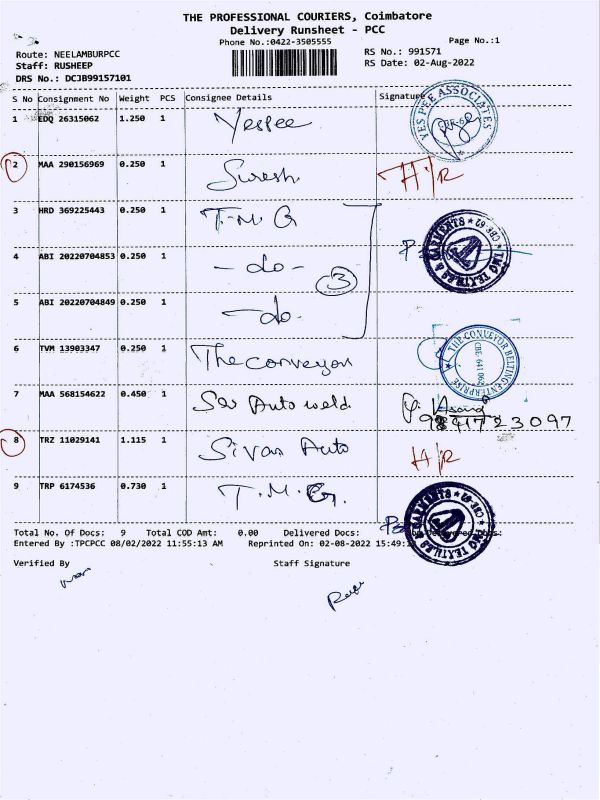 THE PROFESSIONAL COURIERS, Coimbatore
Delivery Runsheet - PCC
Phone No.:0422-3505555
Page No.:1
Route: NEELAMBURPCC
RS No.: 991571
Staff: RUSHEEP
RS Date: 02-Aug-2022
DRS No.: DCJB99157101
S No Consignment No Weight PCS Consignee Details Signature
1 EDQ 26315062 1.250 1 Yespee
YES PEE ASSOCIATES
2 MAA 290156969 0.250 1 Suresh H/R
3 HRD 369225443 0.250 1 T.M.G
4 ABI 20220704853 0.250 1 -do-
3
TMG TEXTILES & GARMENTS * CBE-62 *
5 ABI 20220704849 0.250 1 -do-
6 TVM 13903347 0.250 1 The conveyon
THE CONVEYOR BELTING ENTERPRISE
CBE 641 062
7 MAA 568154622 0.450 1 Auto weld
8 TRZ 11029141 1.115 1 Sivan Auto H/R
9 TRP 6174536 0.730 1 T.M.G.
TMG TEXTILES & GARMENTS * CBE-62 *
Total No. Of Docs: 9 Total COD Amt: 0.00 Delivered Docs:
Entered By :TPCPCC 08/02/2022 11:55:13 AM Reprinted On: 02-08-2022 15:49:
Verified By Staff Signature